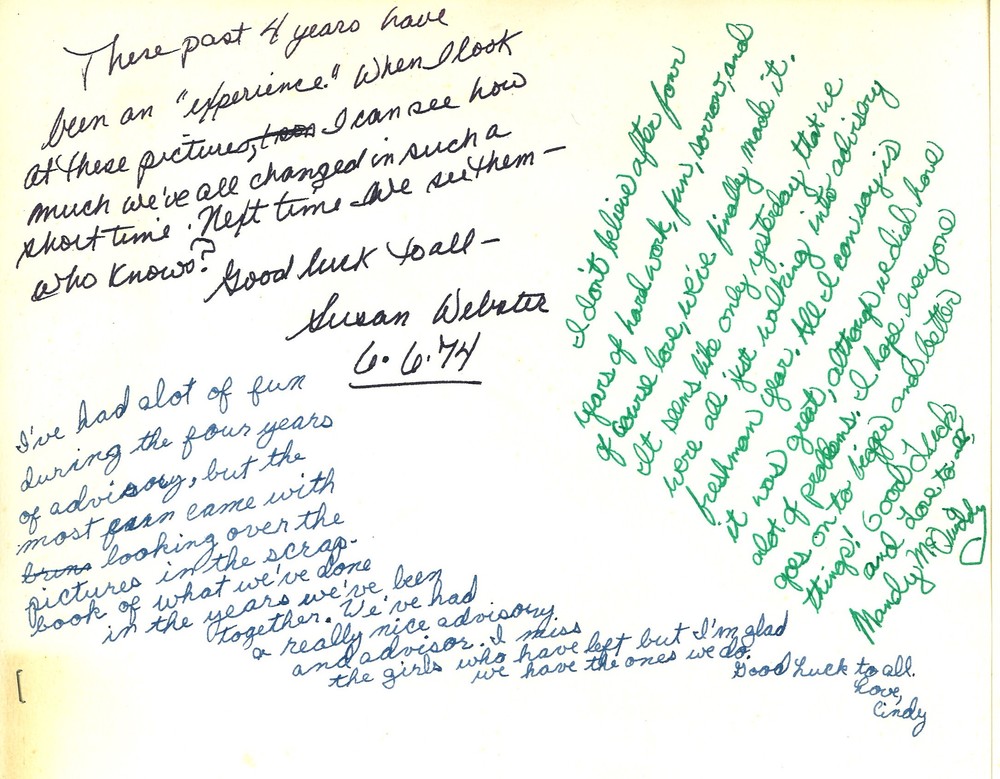 These past 4 years have
been an "experience." When I look
at these pictures, I can see how
much we've all changed in such a
short time. Next time we see them—
who knows?
Good luck to all—
Susan Webster
6·6·74
I don't believe after four
years of hard work, fun, sorrow, and
of course love, we've finally made it.
It seems like only yesterday that we
were all just walking into advisory
freshman year. All I can say is
it was great, although we did have
alot of problems. I hope everyone
goes on to bigger and better
things! Good Luck
and Love to all,
Mandy McQuiddy
I've had alot of fun
during the four years
of advisory, but the
most came with
looking over the
pictures in the scrap-
book of what we've done
in the years we've been
together. We've had
a really nice advisory
and advisor. I miss
the girls who have left but I'm glad
we have the ones we do.
Good Luck to all.
Love,
Cindy